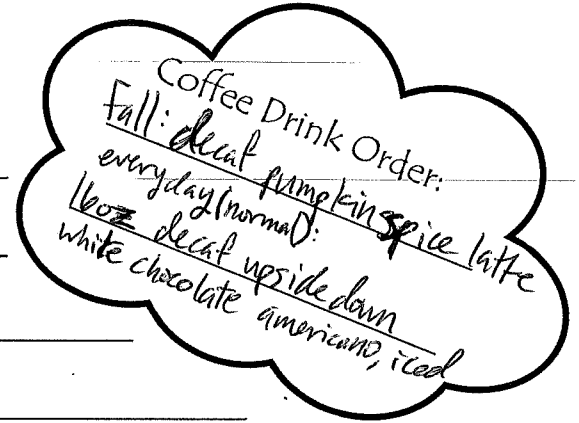 Coffee Drink Order:
Fall: decaf pumpkin spice latte
everyday (normal):
16oz decaf upside down
white chocolate americano, iced